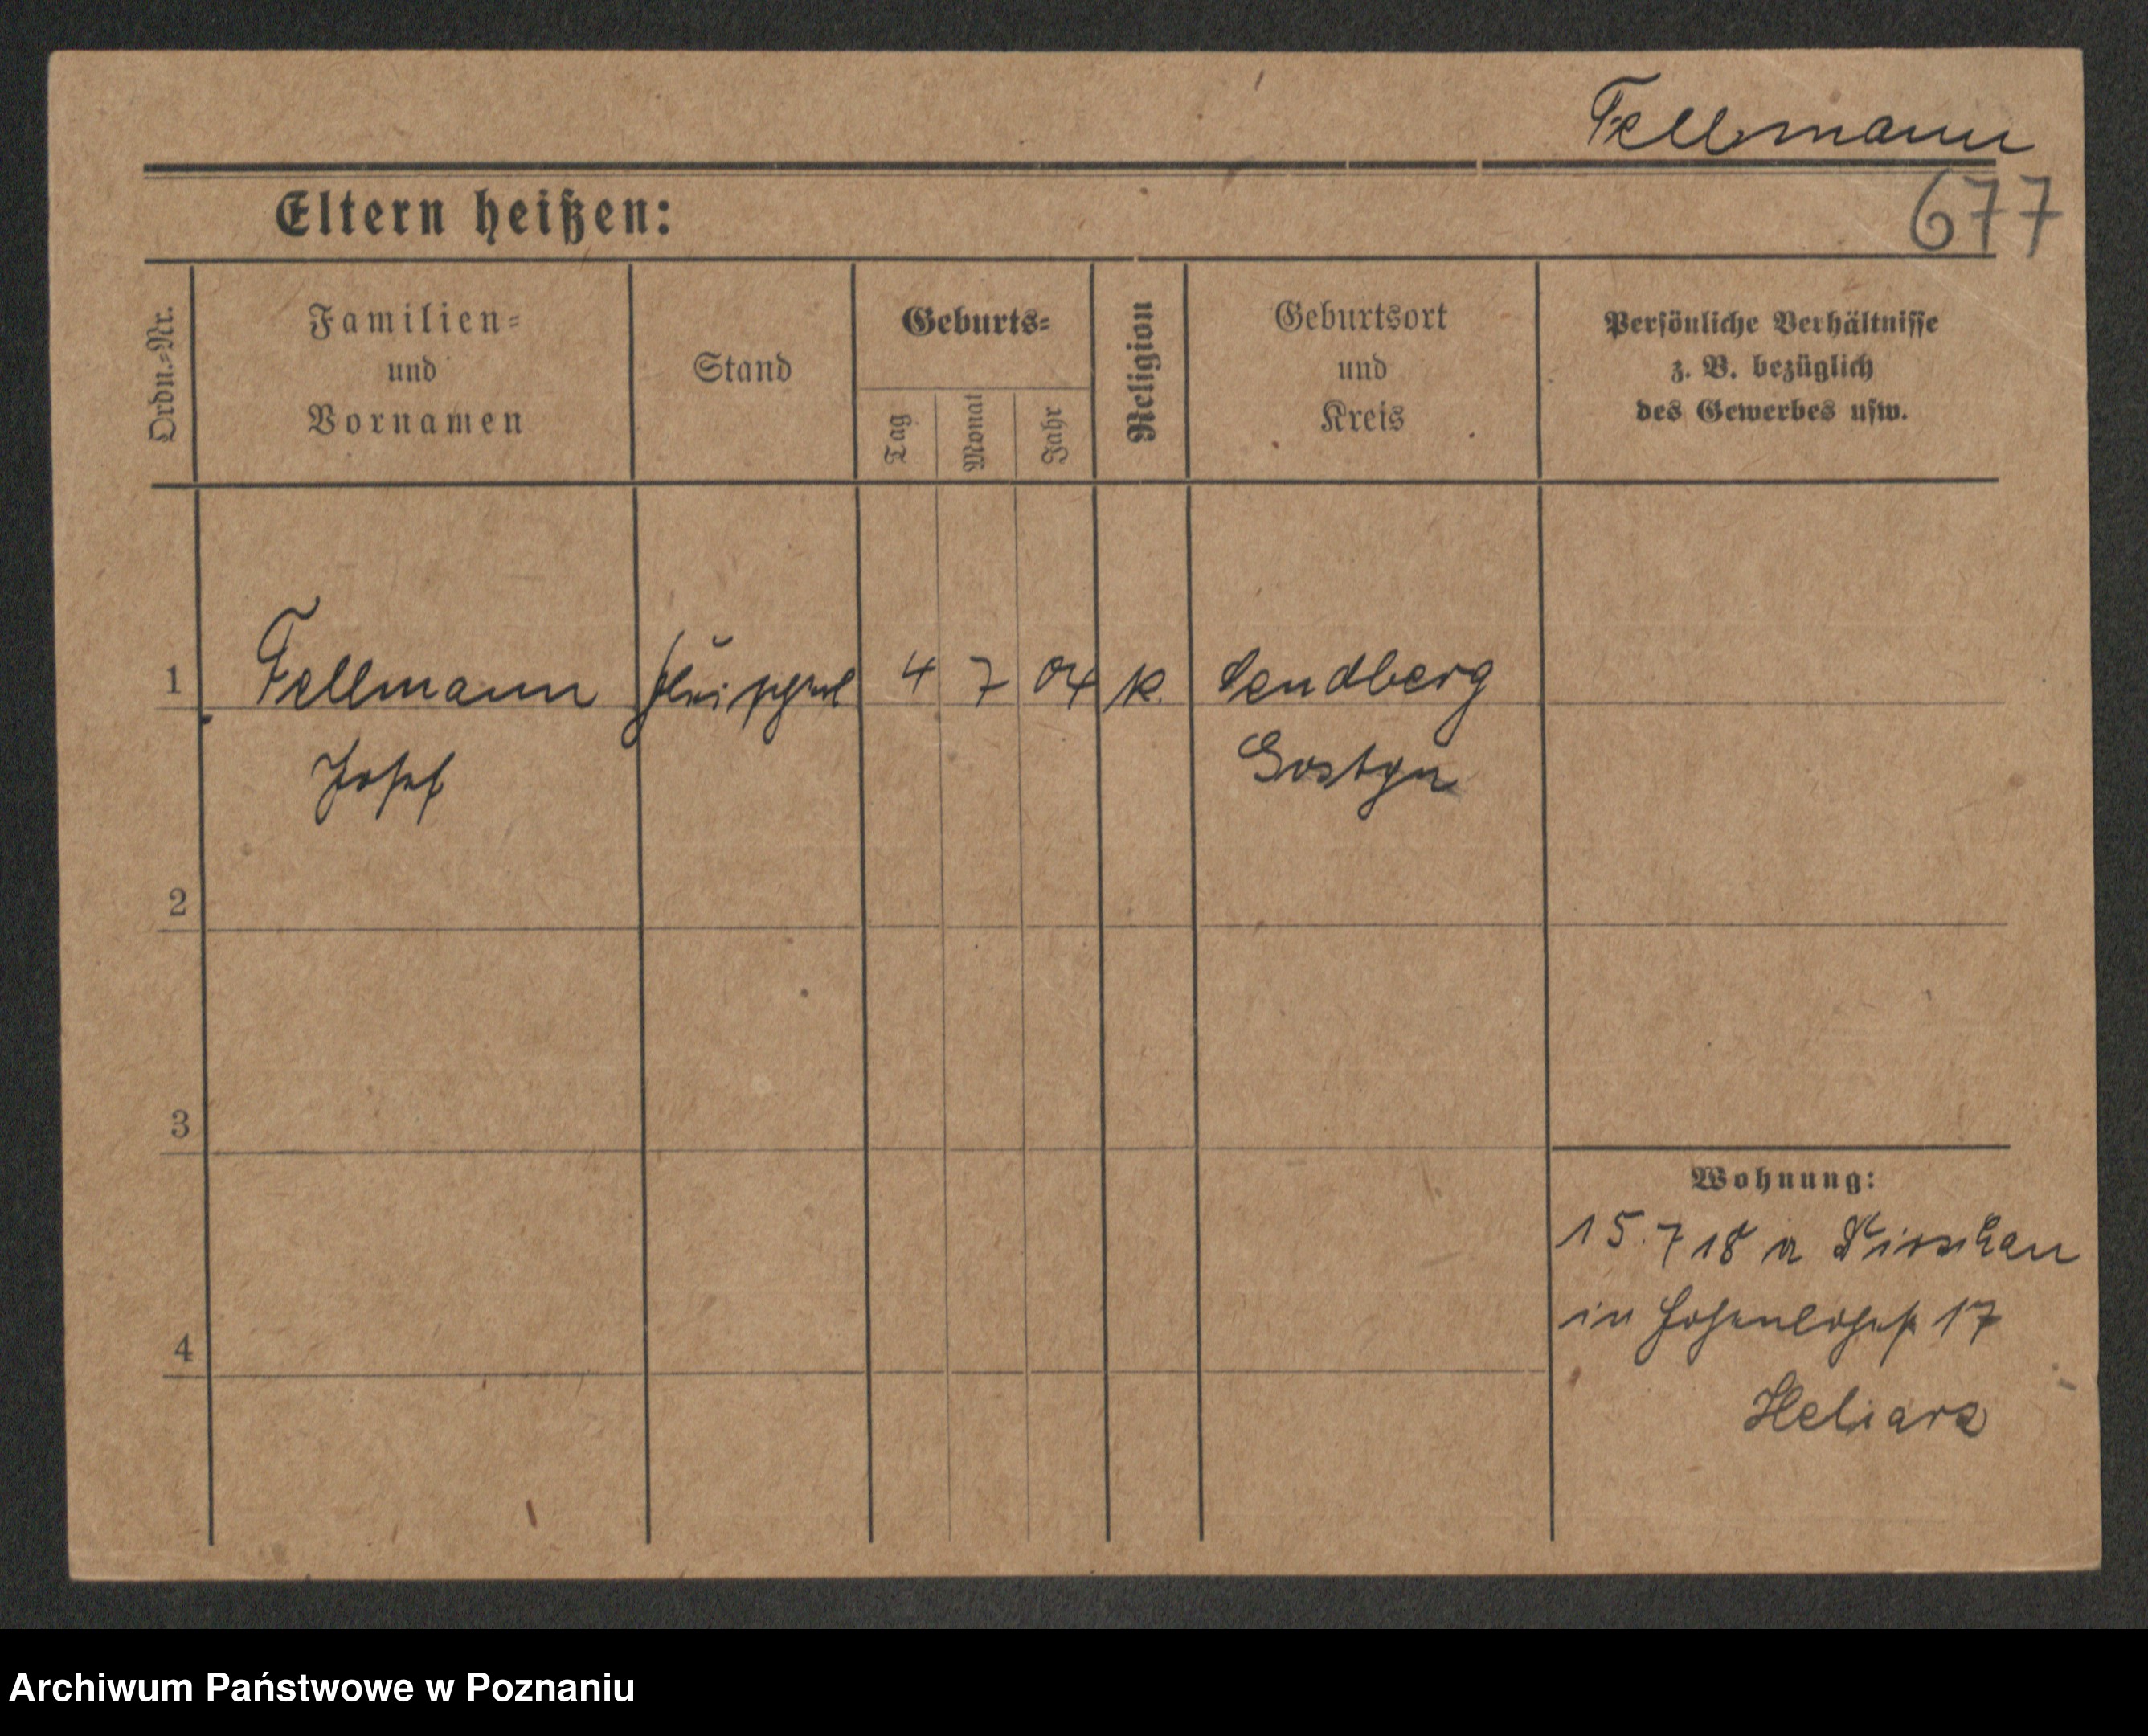 Fellmann
677
Eltern heißen:
Ordn.-Nr.
Familien-
und
Vornamen
Stand
Geburts-
Tag
Monat
Jahr
Religion
Geburtsort
und
Kreis
Persönliche Verhältnisse
z. B. bezüglich
des Gewerbes usw.
1 Fellmann 4 7 04 k. Sandberg
Josef Gostyn
2
3
4
Wohnung:
15.7 18 a
in Hohenlohestr 17